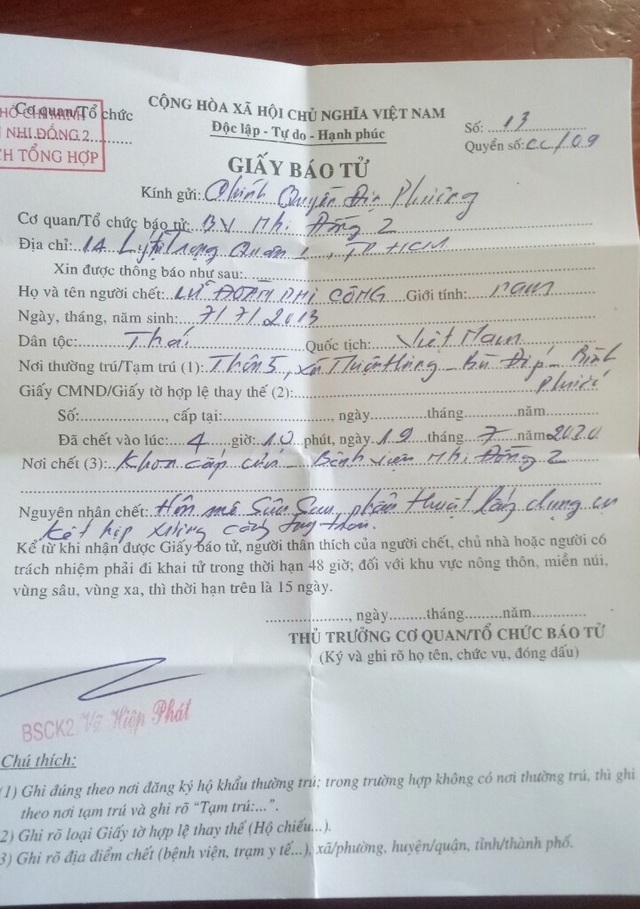 HỒ CHÍ MINH
NHI ĐỒNG 2
CH TỔNG HỢP
Cơ quan/Tổ chức
CỘNG HÒA XÃ HỘI CHỦ NGHĨA VIỆT NAM
Độc lập - Tự do - Hạnh phúc
Số: 13
Quyển số: CC/09
GIẤY BÁO TỬ
Kính gửi: Chính Quyền Địa Phương
Cơ quan/Tổ chức báo tử: BV Nhi Đồng 2
Địa chỉ: 14 Lý Tự Trọng Quận 1, TP HCM
Xin được thông báo như sau:
Họ và tên người chết: LỮ ĐOÀN PHI CÔNG Giới tính: nam
Ngày, tháng, năm sinh: 7/7/2013
Dân tộc: Thái Quốc tịch: Việt Nam
Nơi thường trú/Tạm trú (1): Thôn 5, xã - Bù Đốp - Bình Phước
Giấy CMND/Giấy tờ hợp lệ thay thế (2):
Số:........, cấp tại:........, ngày........tháng........năm........
Đã chết vào lúc: 4 giờ: 10 phút, ngày 19 tháng 7 năm 2020
Nơi chết (3): Khoa cấp cứu - Bệnh viện Nhi Đồng 2
Nguyên nhân chết: Hôn mê sâu sau phẫu thuật dụng cụ
kết hợp xương
Kể từ khi nhận được Giấy báo tử, người thân thích của người chết, chủ nhà hoặc người có
trách nhiệm phải đi khai tử trong thời hạn 48 giờ; đối với khu vực nông thôn, miền núi,
vùng sâu, vùng xa, thì thời hạn trên là 15 ngày.
................, ngày........tháng........năm........
THỦ TRƯỞNG CƠ QUAN/TỔ CHỨC BÁO TỬ
(Ký và ghi rõ họ tên, chức vụ, đóng dấu)
BSCK2. Võ Hiệp Phát
Chú thích:
(1) Ghi đúng theo nơi đăng ký hộ khẩu thường trú; trong trường hợp không có nơi thường trú, thì ghi
theo nơi tạm trú và ghi rõ "Tạm trú:...".
2) Ghi rõ loại Giấy tờ hợp lệ thay thế (Hộ chiếu...).
3) Ghi rõ địa điểm chết (bệnh viện, trạm y tế...), xã/phường, huyện/quận, tỉnh/thành phố.